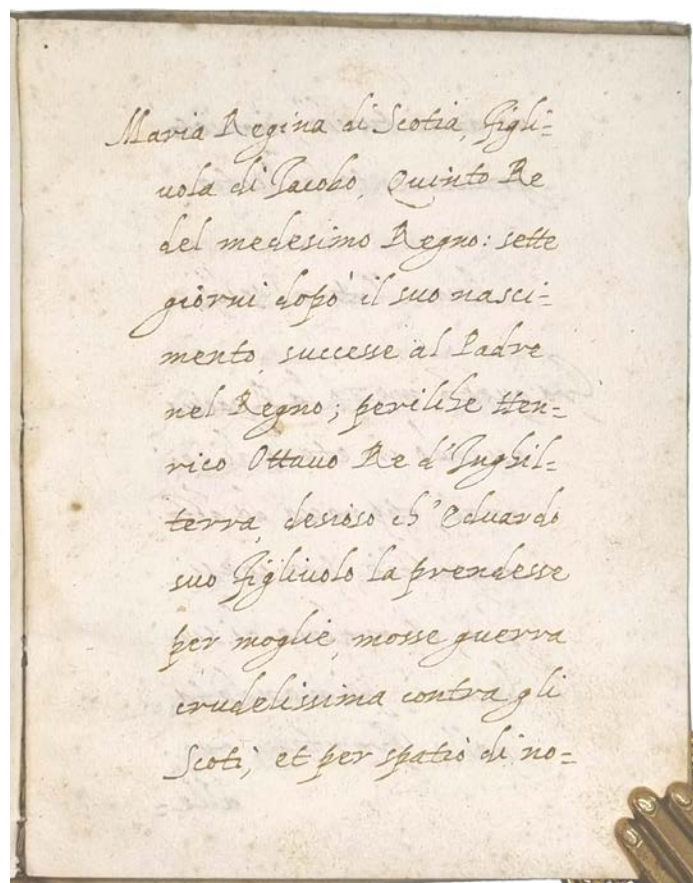 Maria Regina di Scotia, figli=
uola di Iacobo, Quinto Re
del medesimo Regno: sette
giorni dopò il suo nasci=
mento, successe al Padre
nel Regno; perilche Hen=
rico Ottauo Re d'Inghil=
terra, desioso ch'Eduardo
suo figliuolo la prendesse
per moglie, mosse guerra
crudelissima contra gli
Scoti, et per spatio di no=